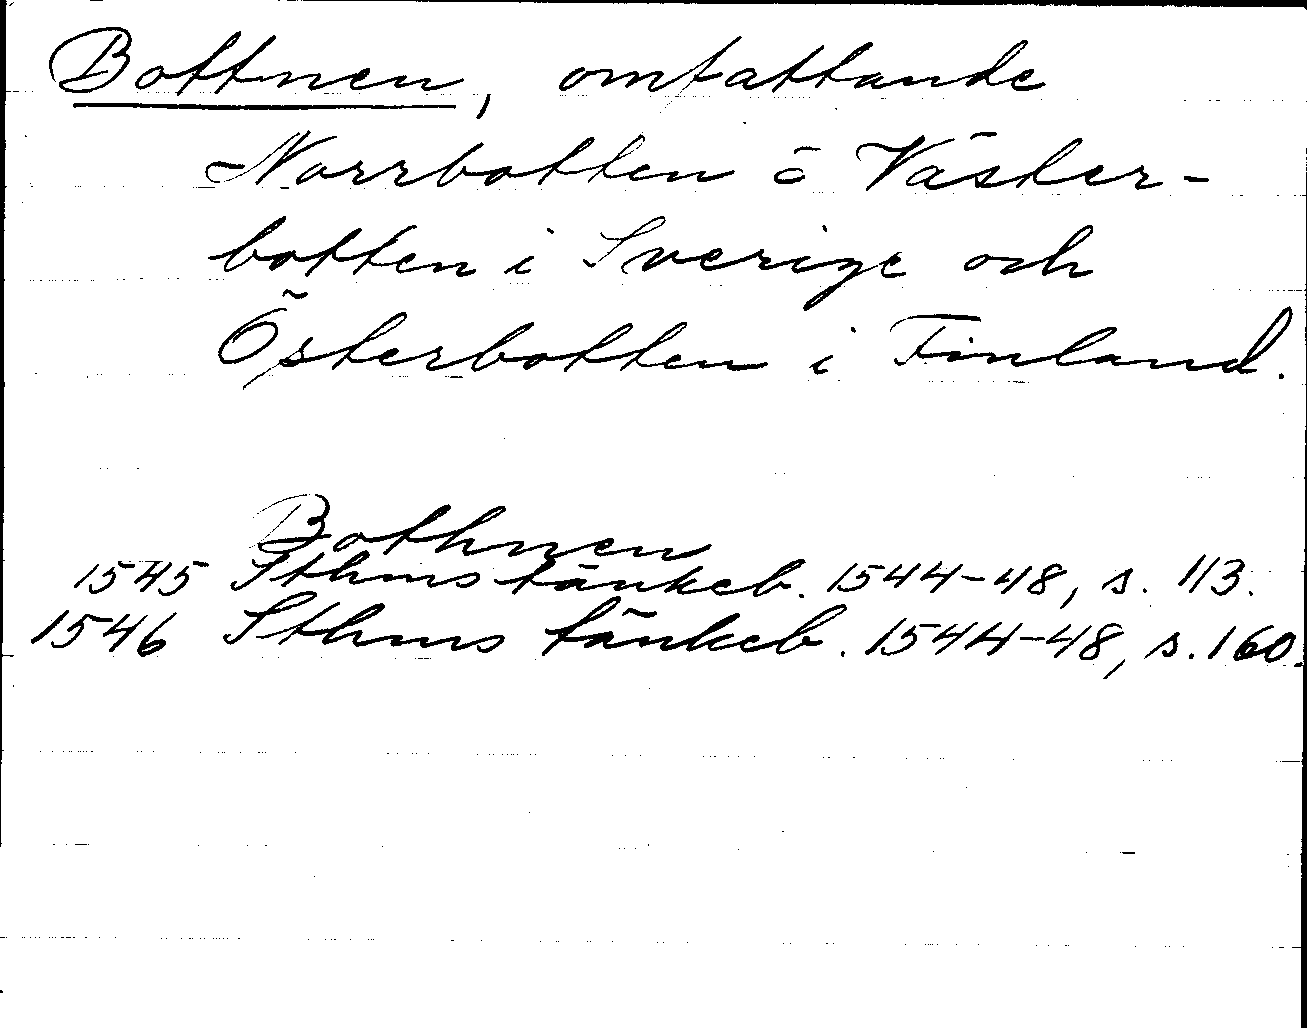 Bottnen, omfattande
Norrbotten o Väster-
botten i Sverige och
Österbotten i Finland.
Bothnen
1545 Sthms tänkeb. 1544-48, s. 113.
1546 Sthms tänkeb. 1544-48, s. 160.